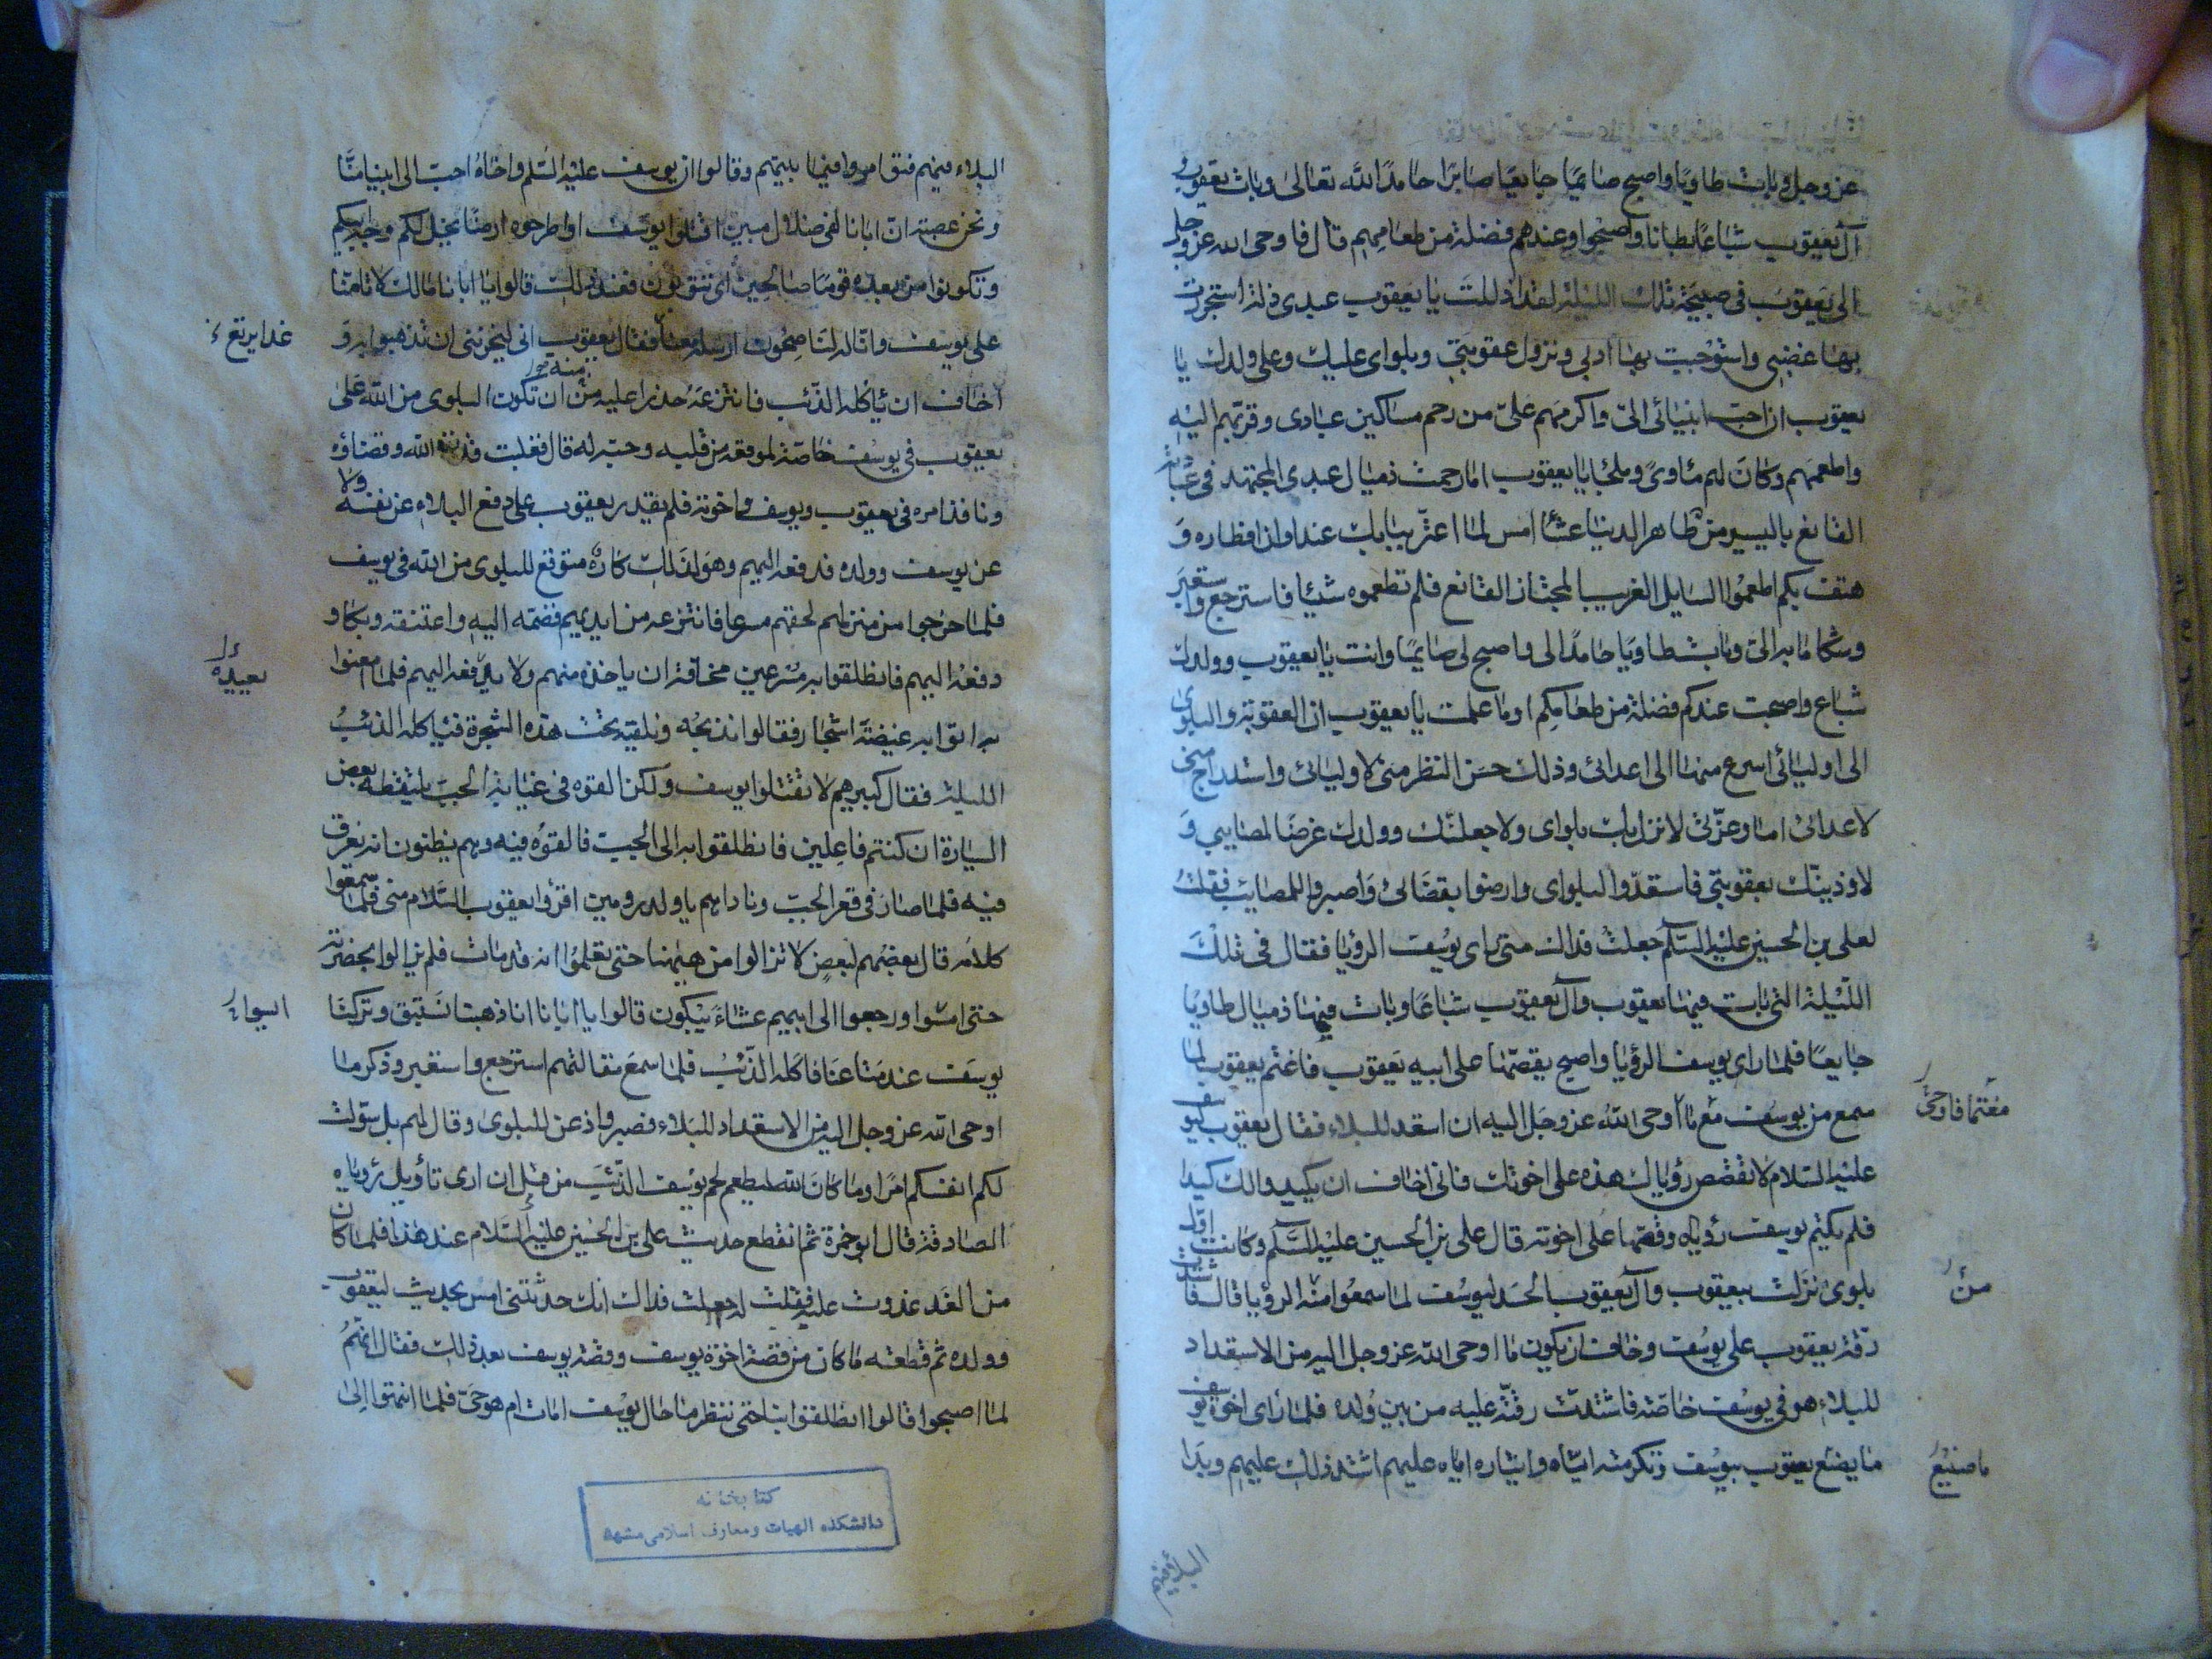 عز وجل وبات طاويا واصبح صايما جايعا صابرا حامدا لله تعالى وبات يعقوب
آل يعقوب شباعا بطانا واصبحوا وعندهم فضلة من طعامهم قال فاوحى الله عز وجل
الى يعقوب فى صبيحة تلك الليلة لقد اذللت يا يعقوب عبدى ذلة استجررت
بها غضبى واستوجبت بها ادبى ونزول عقوبتى وبلواى عليك وعلى ولدك يا
يعقوب ان احب انبيائى الى واكرمهم على من رحم مساكين عبادى وقربهم اليه
واطعمهم وكان لهم مأوى وملجأ يا يعقوب اما رحمت ذميال عبدى المجتهد فى عبادته
القانع باليسير من ظاهر الدنيا عشاء امس لما اعتر ببابك عند اوان افطاره و
هتف بكم اطعموا السايل الغريب المجتاز القانع فلم تطعموه شيئا فاسترجع واستعبر
وشكا ما به الى وبات طاويا حامدا لى واصبح لى صايما وانت يا يعقوب وولدك
شباع واصبحت عندكم فضلة من طعامكم اوما علمت يا يعقوب ان العقوبة والبلوى
الى اوليائى اسرع منها الى اعدائى وذلك حسن النظر منى لاوليائى واستدراج منى
لاعدائى اما وعزتى لانزلن بك بلواى ولاجعلنك وولدك غرضا لمصايبى و
لاوذينك بعقوبتى فاستعدوا لبلواى وارضوا بقضائى واصبروا للمصايب فقلت
لعلى بن الحسين عليه السلم جعلت فداك متى راى يوسف الرؤيا فقال فى تلك
الليلة التى بات فيها يعقوب وآل يعقوب شباعا وبات فيها ذميال طاويا
جايعا فلما راى يوسف الرؤيا واصبح يقصها على ابيه يعقوب فاغتم يعقوب لما
سمع من يوسف مع ما اوحى الله عز وجل اليه ان استعد للبلاء فقال يعقوب ليوسف
مغتما فاوحى
عليه السلام لا تقصص رؤياك هذه على اخوتك فانى اخاف ان يكيدوا لك كيدا
فلم يكتم يوسف رؤياه وقصها على اخوته قال على بن الحسين عليه السلم وكانت اول
بلوى نزلت بيعقوب وآل يعقوب الحسد ليوسف لما سمعوا منه الرؤيا قال فاشتدت
من
رقة يعقوب على يوسف وخاف ان يكون ما اوحى الله عز وجل اليه من الاستعداد
للبلاء هو فى يوسف خاصة فاشتدت رقته عليه من بين ولده فلما راى اخوة يوسف
ما يصنع يعقوب بيوسف وتكرمته اياه وايثاره اياه عليهم اشتد ذلك عليهم وبدا
ما صنع
البلاء فيهم
البلاء فيهم فتوامروا فيما بينهم وقالوا ان يوسف عليه السلم واخاه احب الى ابينا منا
ونحن عصبة ان ابانا لفى ضلال مبين اقتلوا يوسف او اطرحوه ارضا يخل لكم وجه ابيكم
وتكونوا من بعده قوما صالحين اى تتوبون فعند ذلك قالوا يا ابانا مالك لا تامنا
على يوسف وانا له لناصحون ارسله معنا فقال يعقوب انى ليحزننى ان تذهبوا به و
غدا يرتع
اخاف ان ياكله الذئب فانتزعه حذرا عليه من ان تكون البلوى من الله على
منه
يعقوب فى يوسف خاصة لموقعه من قلبه وحبه له قال فغلبت قدرة الله وقضاؤه
ونافذ امره فى يعقوب ويوسف واخوته فلم يقدر يعقوب على دفع البلاء عن نفسه ولا
عن يوسف وولده فدفعه اليهم وهو لذلك كاره متوقع للبلوى من الله فى يوسف
فلما خرجوا من منزلهم لحقهم مسرعا فانتزعه من ايديهم فضمه اليه واعتنقه وبكا و
دفعه اليهم فانطلقوا به مسرعين مخافة ان ياخذه منهم ولا يدفعه اليهم فلما امعنوا
به اتوا به غيضة اشجار فقالوا نذبحه ونلقيه تحت هذه الشجرة فياكله الذئب
الليلة فقال كبيرهم لا تقتلوا يوسف ولكن القوه فى غيابة الجب يلتقطه بعض
السيارة ان كنتم فاعلين فانطلقوا به الى الجب فالقوه فيه وهم يظنون انه يغرق
فيه فلما صار فى قعر الجب ناداهم يا ولد رومين اقرؤا يعقوب السلام منى فلما سمعوا
كلامه قال بعضهم لبعض لا تزالوا من ههنا حتى تعلموا انه قد مات فلم يزالوا بحضرته
حتى امسوا ورجعوا الى ابيهم عشاء يبكون قالوا يا ابانا انا ذهبنا نستبق وتركنا
يوسف عند متاعنا فاكله الذئب فلما سمع مقالتهم استرجع واستعبر وذكر ما
اوحى الله عز وجل اليه من الاستعداد للبلاء فصبر واذعن للبلوى وقال لهم بل سولت
لكم انفسكم امرا وما كان الله ليطعم لحم يوسف الذئب من قبل ان ارى تاويل رؤياه
الصادقة قال ابو حمزة ثم انقطع حديث على بن الحسين عليه السلام عند هذا فلما كان
من الغد غدوت عليه فقلت له جعلت فداك انك حدثتنى امس بحديث ليعقوب
وولده ثم قطعته ما كان من قصة اخوة يوسف وقصة يوسف بعد ذلك فقال انهم
لما اصبحوا قالوا انطلقوا بنا حتى ننظر ما حال يوسف امات ام هو حى فلما انتهوا الى
كتابخانه
دانشكده الهيات ومعارف اسلامى مشهد